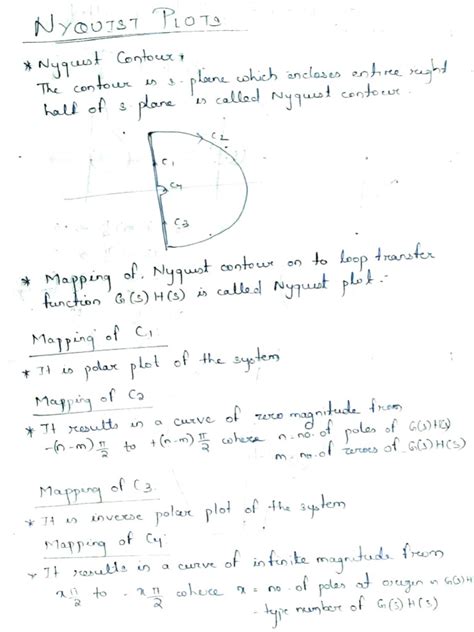 NYQUIST PLOTS
* Nyquist Contour,
The contour is s-plane which encloses entire right
half of s plane is called Nyquist contour.
C2
C1
C4
C3
* Mapping of Nyquist contour on to loop transfer
function G(s)H(s) is called Nyquist plot.
Mapping of C1
* It is polar plot of the system
Mapping of C2
* It results in a curve of zero magnitude from
-(n-m)π/2 to +(n-m)π/2 where n-no. of poles of G(s)H(s)
m-no. of zeroes of G(s)H(s)
Mapping of C3
* It is inverse polar plot of the system
Mapping of C4
* It results in a curve of infinite magnitude from
xπ/2 to -xπ/2 where x = no. of poles at origin in G(s)H
- type number of G(s)H(s)